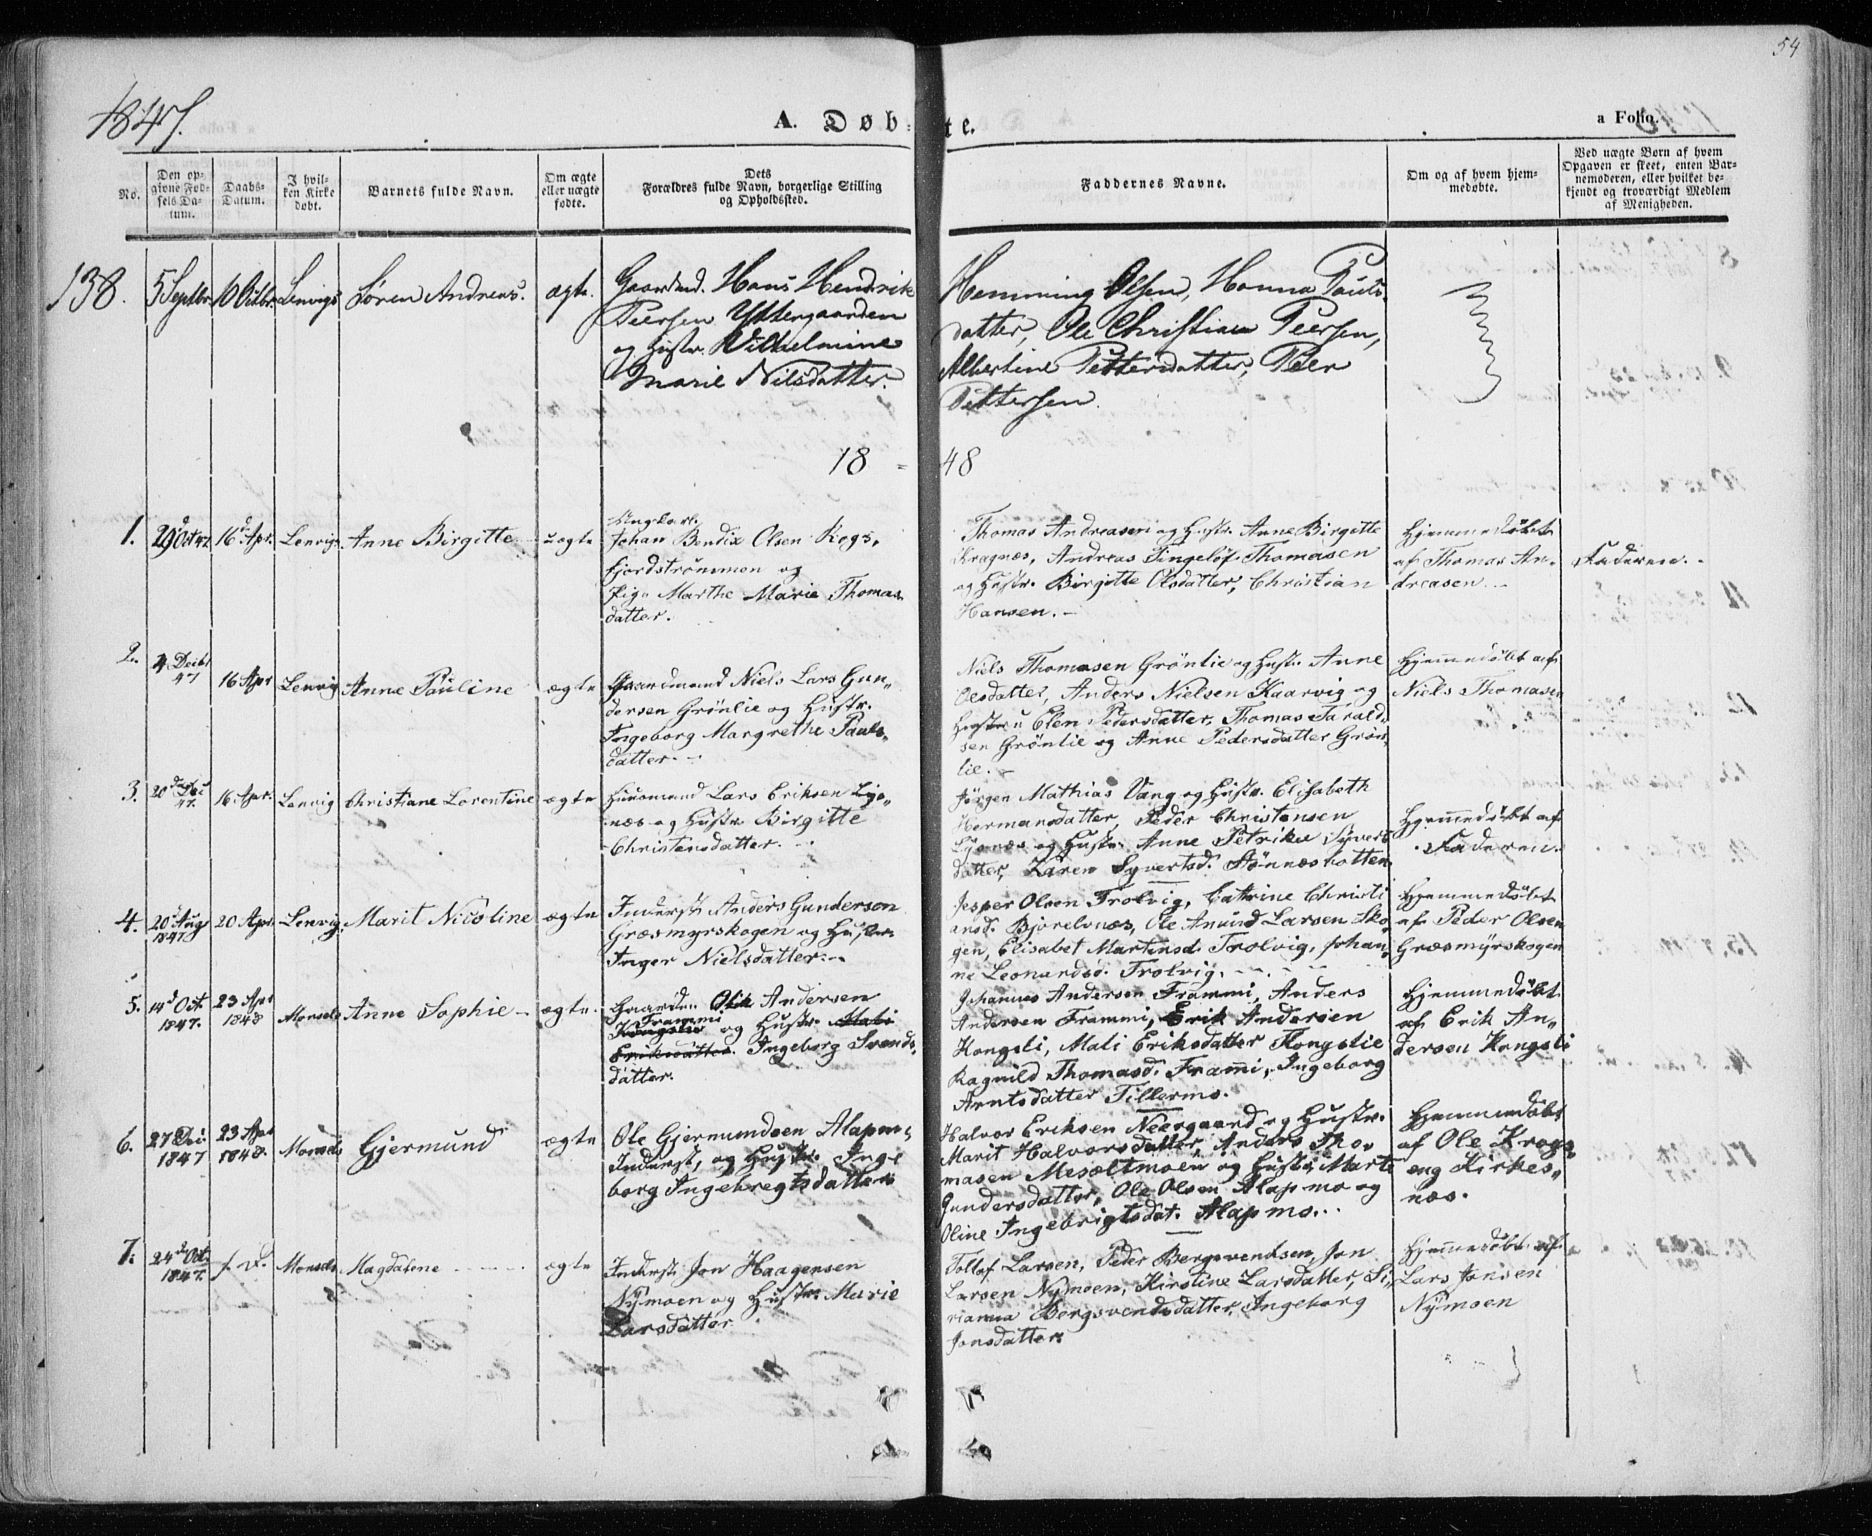 54
1847.
A. Døb-te.
a Folio.
No.
Den op-
givne Fød-
sels Da-
tum.
Daabs-
Datum.
I hvil-
ken Kirke
døbt.
Barnets fulde Navn.
Om ægte
eller uægte
fødte.
Dets
Forældres fulde Navn, borgerlige Stilling
og Opholdssted.
Faddernes Navne.
Om og af hvem hjem-
medøbte.
Ved uægte Børn af hvem
Opgaven er skeet, enten Bar-
nemoderen, eller hvilket be-
kjendt og troværdigt Medlem
af Menigheden.
138. 5 Septbr 10 Octbr Lenvigs Søren Andreas. ægte.
Gaardmd. Hans Hendrik
Peersen Yttergaarden
og Hustr. Wilhelmine
Marie Nilsdatter.
Hemming Olsen, Hanna Pauls
datter, Ole Christian Peersen,
Albertine Pettersdatter, Peer
Pettersen.
18 - 48
1. 29 Oct 47. 16 Apr. Lenvig. Anne Birgitte uægte
Ungkarl.
Johan Bendix Olsen Rogs,
fjordstrømmen og
Pige Marthe Marie Thomas
datter.
Thomas Andreasen og Hustr. Anne Birgitte
Kragnæs, Andreas Tingelöf Thomasen
og Hustr. Birgitte Olsdatter, Christian
Hansen.-
Hjemmedøbt
af Thomas An-
dreasen.-
Faderen.-
2. 4 Decbr 47 16 Apr Lenvig Anne Pauline ægte
Gaardmand Niels Lars Gun„
dersen Grönlie og Hustr.
Ingeborg Margrethe Pauls„
datter.-
Niels Thomasen Grönlie og Hustr. Anne
Olsdatter, Anders Nielsen Kaarvig og
Hustru Elen Pedersdatter, Thomas Tarald„
sen Grönlie og Anne Pedersdatter Grön
lie.-
Hjemmedöbt af
Niels Thomasen
3. 20 Dec 47. 16 Apr. Lenvig Christiane Lorentine ægte
Huusmand Lars Eriksen Lys„
næs og Hustr. Birgitte
Christensdatter.-
Jörgen Mathias Vang og Hustr. Elisabeth
Hermansdatter, Peder Christensen
Lysnes og Hustr. Anne Petrikke Syvert
datter, Karen Syvertsd. Stönnesbotten
Hjemmedöbt af
Faderen.
4. 20 Aug 1847 20 Apr. Lenvig. Marit Nicoline ægte
Inderst Anders Gundersen
Græsmyrskogen og Hustr.
Inger Nielsdatter.-
Jesper Olsen Trolvig, Catrine Christi
ansd. Bjorelvnæs, Ole Amund Larsen Sko„
gen, Elisabet Martinsd. Trolvig, Johan„
ne Leonardsd. Trolvig.-
Hjemmedöbt
af Peder Olsen
Græsmyrskogen
5. 14 Oct 1847. 23 Apr 1848 Monsels Anne Sophie- ægte.
Gaardm. Ole Andersen
Frammi
Kongslie og Hustr. Mali
Eriksdatter. Ingeborg Svends,
datter.
Johannes Andersen Frammi, Anders
Andersen Frammi, Erik Andersen
Kongsli, Mali Eriksdatter Kongslie
Ragnild Thomasd. Frami, Ingeborg
Arntsdatter Tillermo.
Hjemmedöbt
af Erik An„
dersen Kongsli
6. 27 Dec 1847 23 Apr 1848. Monsels Gjermund ægte
Ole Gjermundsen Alapmo,
Inderst, og Hustr. Inge
borg Ingebregtsdatter
Halvor Eriksen Neergaard og Hustr.
Marit Halvorsdatter, Anders Tho„
masen Mesæltmoen og Hustr. Marte
Gundersdatter, Ole Olsen Alapmo og
Oline Ingebrigtsdat. Alapmo.
Hjemmedöbt
af Ole Krogs„
eng Kirkes„
næs.
7. 24 Oct. 1847. s. D. Monsels Magdalene ægte
Inderst Jon Haagensen
Nÿmoen og Hustr. Marie
Larsdatter.
Tollef Larsen, Peder Bergsvendsen, Jon
Larsen Nÿmoen, Kirstine Larsdatter, Si„
rianna Bergsvendsdatter, Ingeborg
Jonsdatter.
Hjemmedöbt af
Lars Jonsen
Nÿmoen